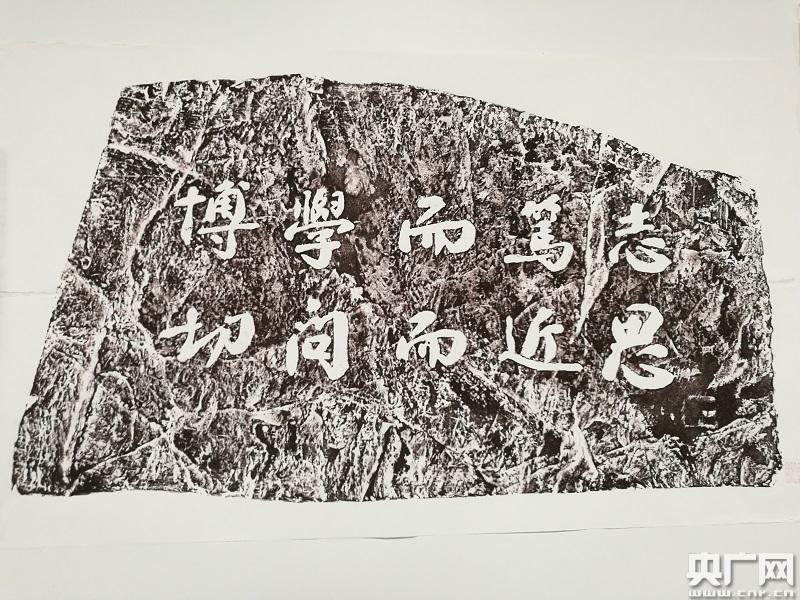 博學而篤志
切问而近思
央广网
www.cnr.cn